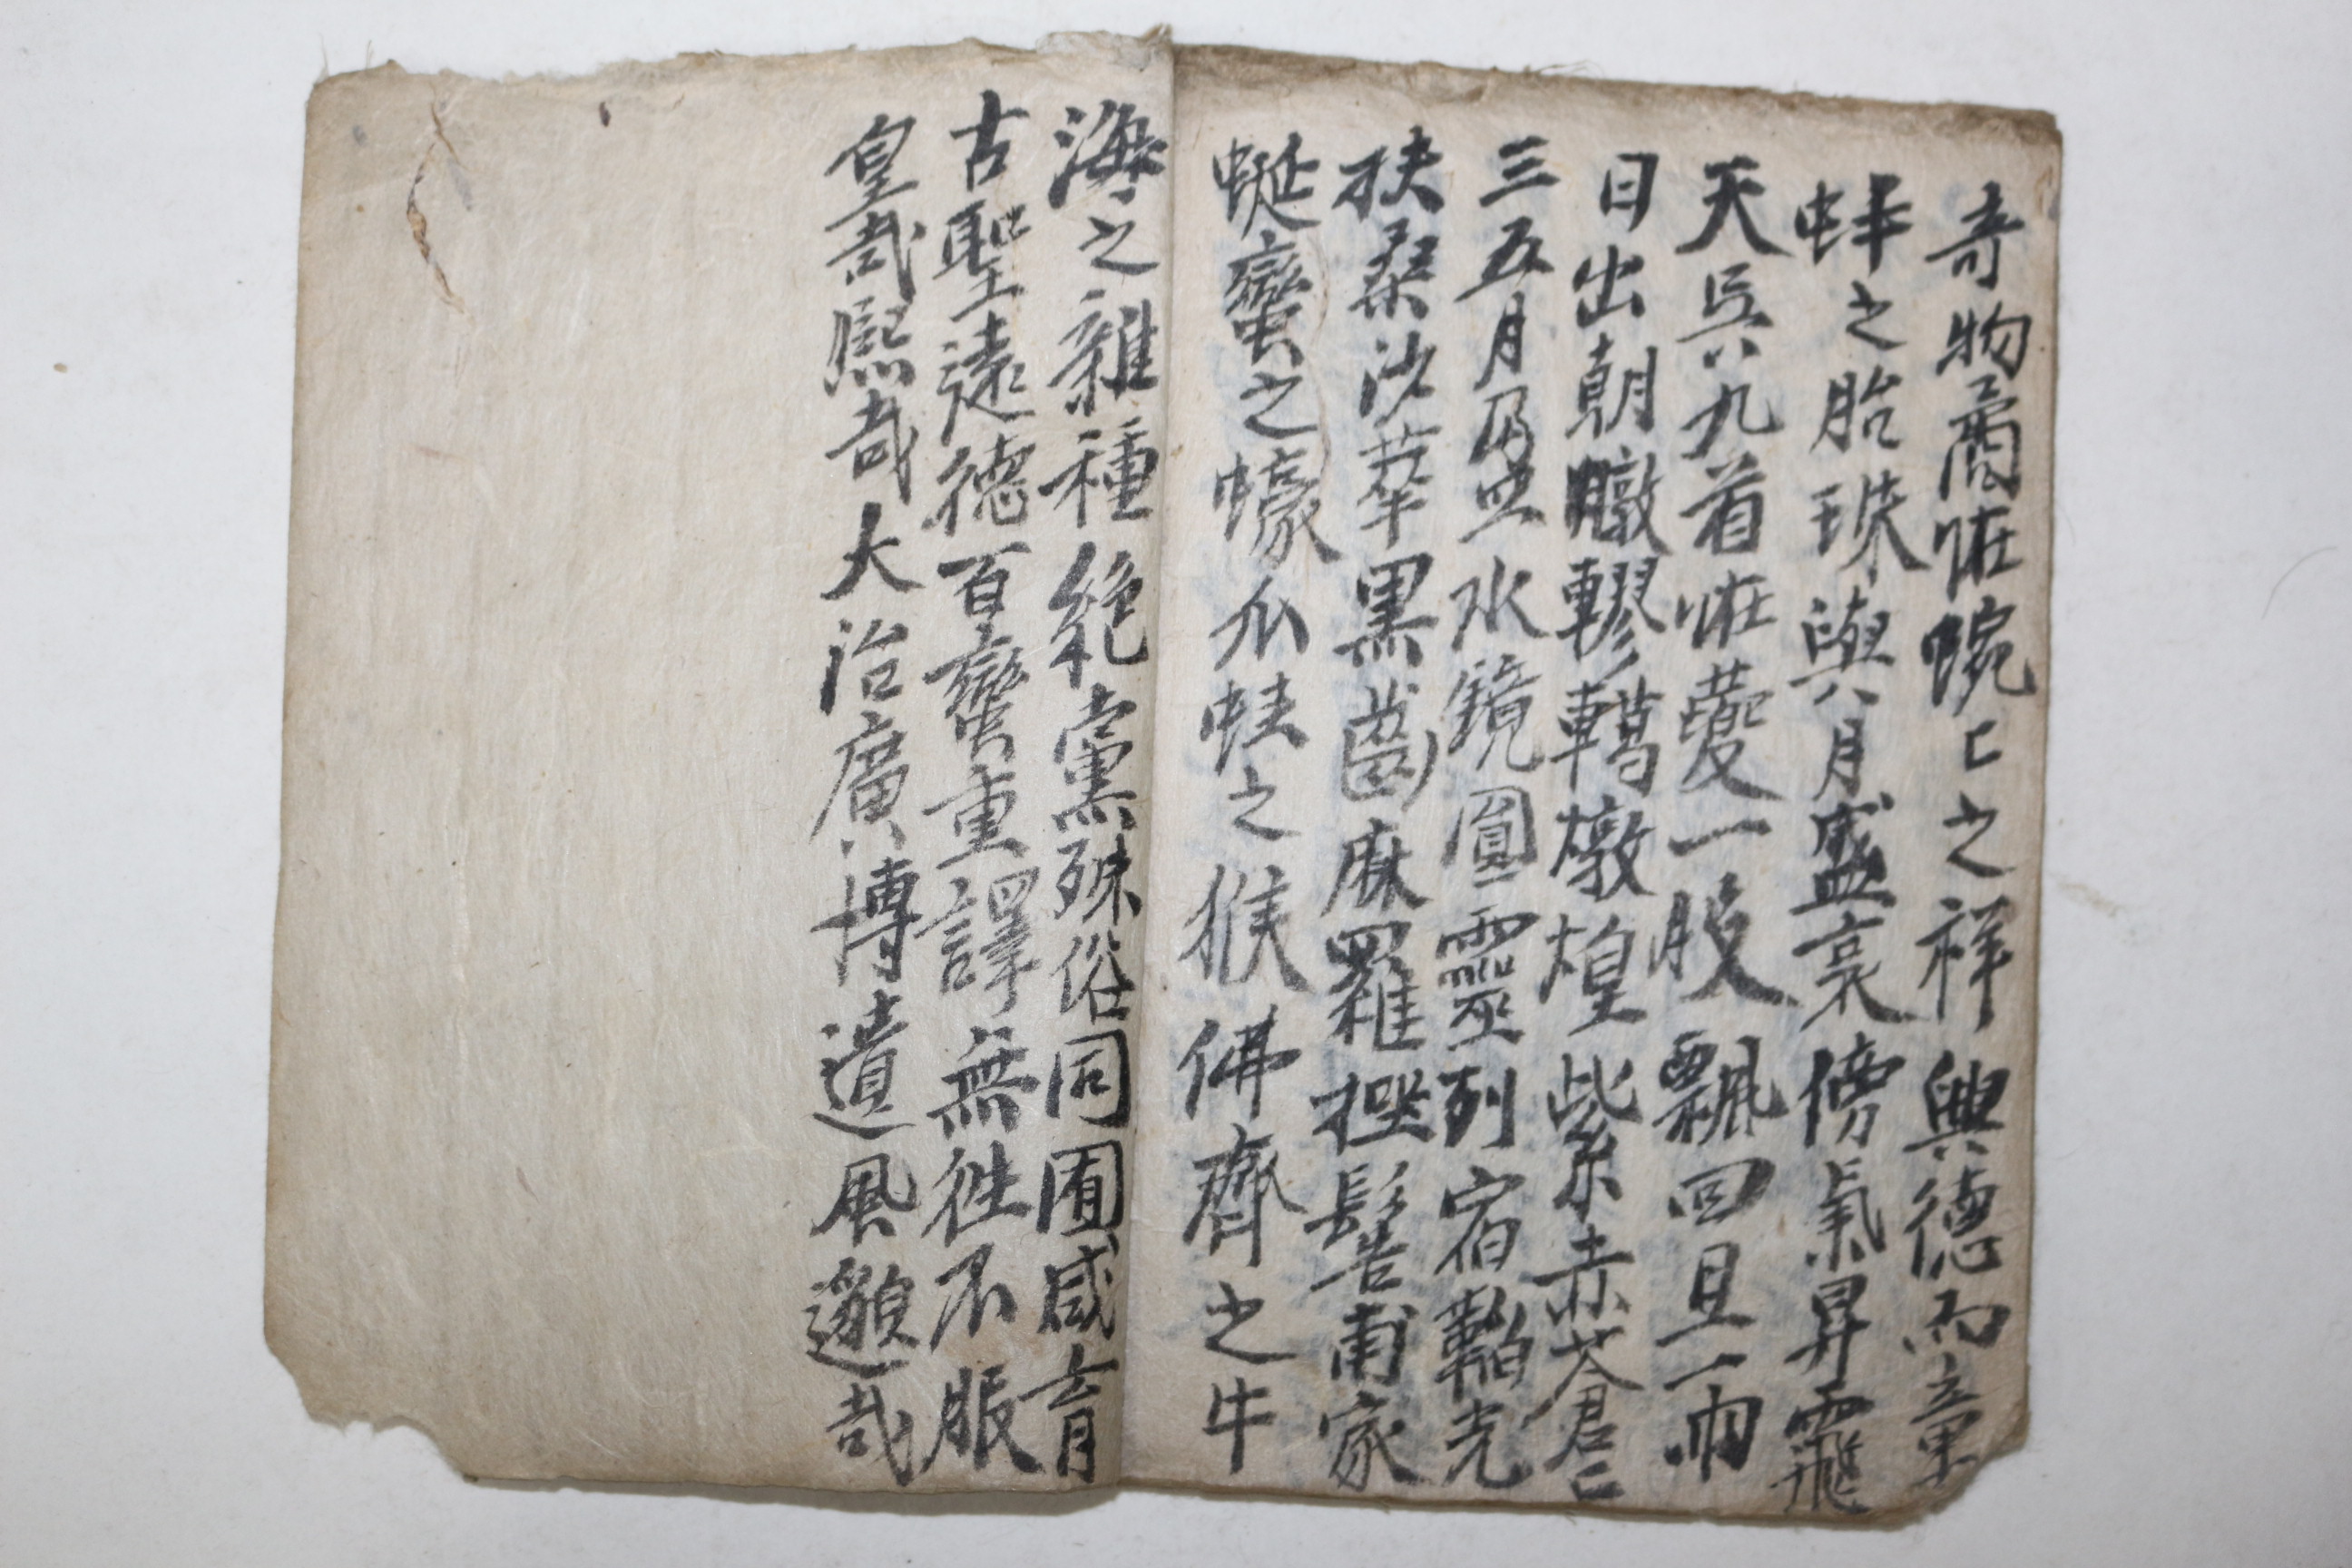 奇物矞恠蜿〻之祥興德而童
蚌之胎珠與月盛衰傍氣昇
天吳九首恠夔一股飄回且雨
日出朝暾轇轕燉煌紫赤蒼〻
三五月盈水鏡圓靈列宿韜光
扶桑沙華黑齒麻羅髻甫家
蜒蠻之蠔爪蛙之猴佛齊之牛
海之雜種絶黨殊俗同囿咸育
古聖遠德百蠻重譯無往不服
皇哉熙哉大治廣博遺風邈哉